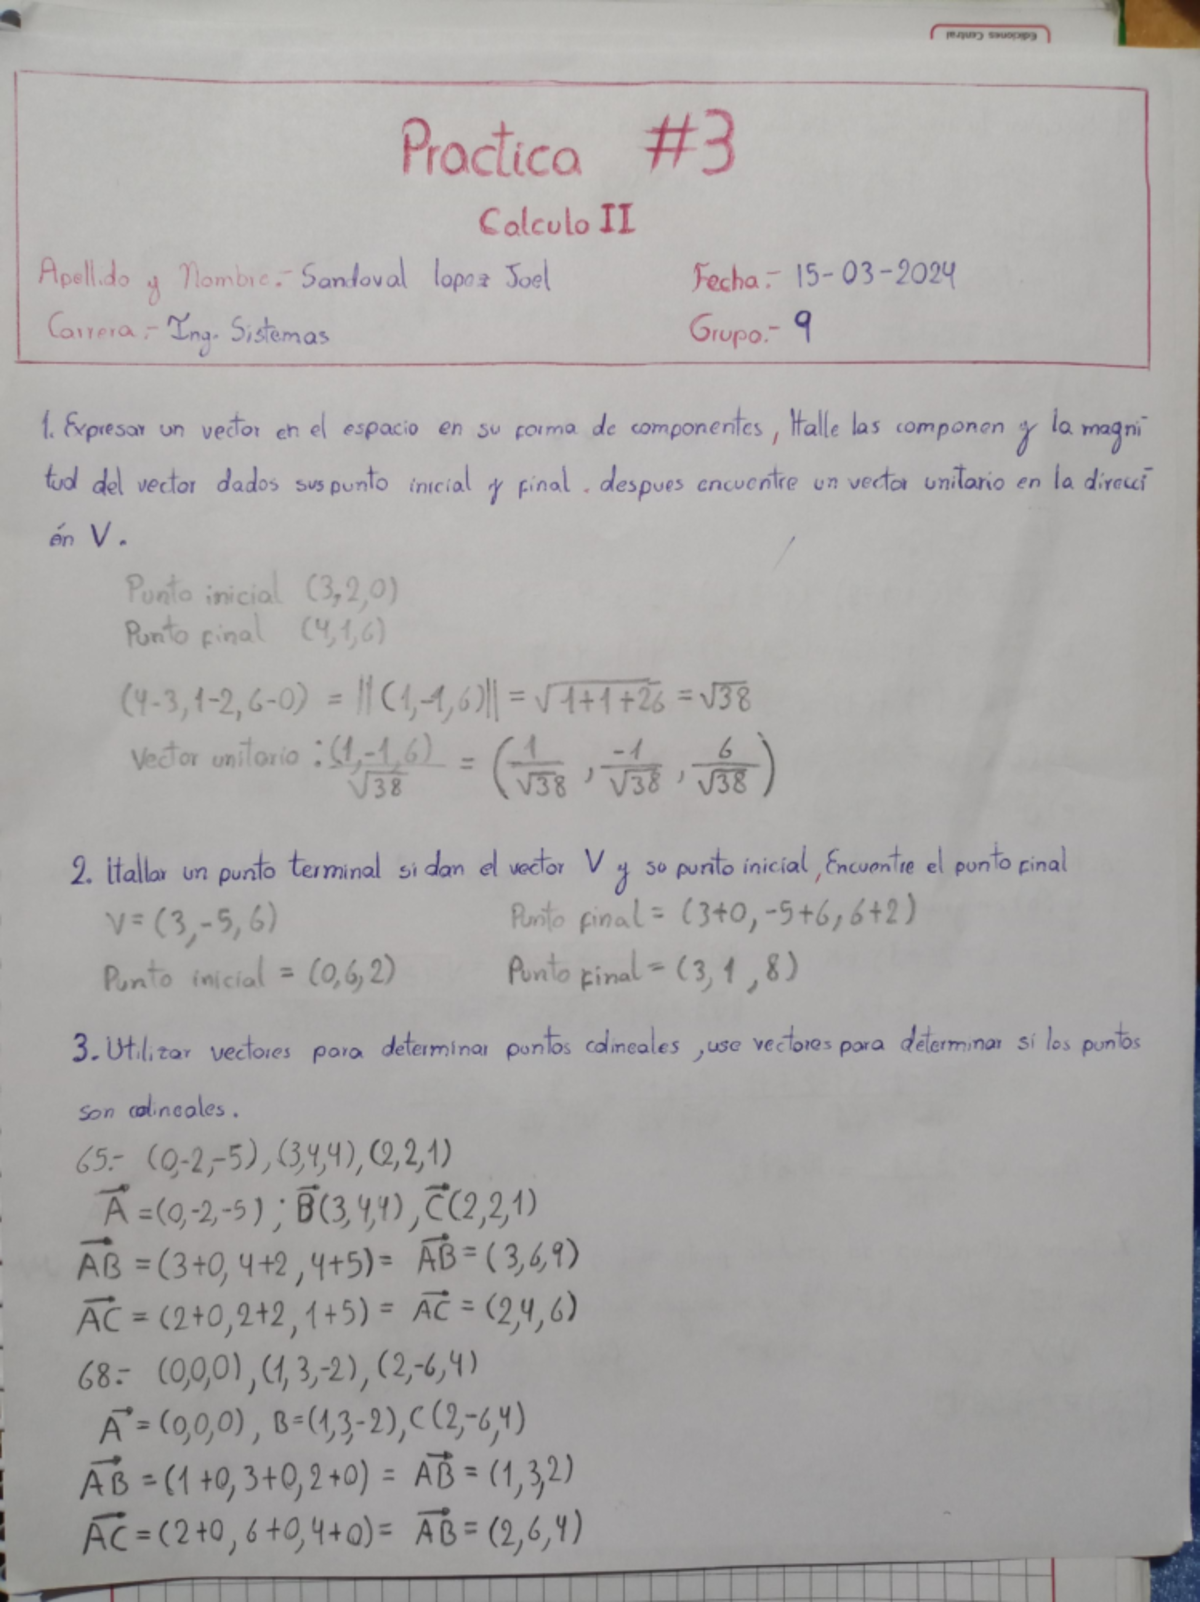 Ediciones Central
Practica #3
Calculo II
Apellido y Nombre.- Sandoval lopez Joel
Fecha.- 15-03-2024
Carrera.- Ing. Sistemas
Grupo.- 9
1. Expresar un vector en el espacio en su forma de componentes, Halle las componen y la magni-
tud del vector dados sus punto inicial y final. despues encuentre un vector unitario en la direcci-
ón V.
Punto inicial (3,2,0)
Punto final (4,1,6)
(4-3,1-2,6-0) = ||(1,-1,6)|| = √1+1+26 = √38
Vector unitario : (1,-1,6)/√38 = (1/√38, -1/√38, 6/√38)
2. Hallar un punto terminal si dan el vector V y so punto inicial, Encuentre el punto final
V = (3,-5,6)
Punto final = (3+0, -5+6, 6+2)
Punto inicial = (0,6,2)
Punto final = (3,1,8)
3. Utilizar vectores para determinar puntos colineales, use vectores para determinar si los puntos
son colineales.
65.- (0,-2,-5), (3,4,4), (2,2,1)
A⃗ = (0,-2,-5) ; B⃗(3,4,4), C⃗(2,2,1)
AB⃗ = (3+0, 4+2, 4+5) = AB⃗ = (3,6,9)
AC⃗ = (2+0, 2+2, 1+5) = AC⃗ = (2,4,6)
68.- (0,0,0), (1,3,-2), (2,-6,4)
A⃗ = (0,0,0), B=(1,3,-2), C(2,-6,4)
AB⃗ = (1+0, 3+0, 2+0) = AB⃗ = (1,3,2)
AC⃗ = (2+0, 6+0, 4+0) = AB⃗ = (2,6,4)